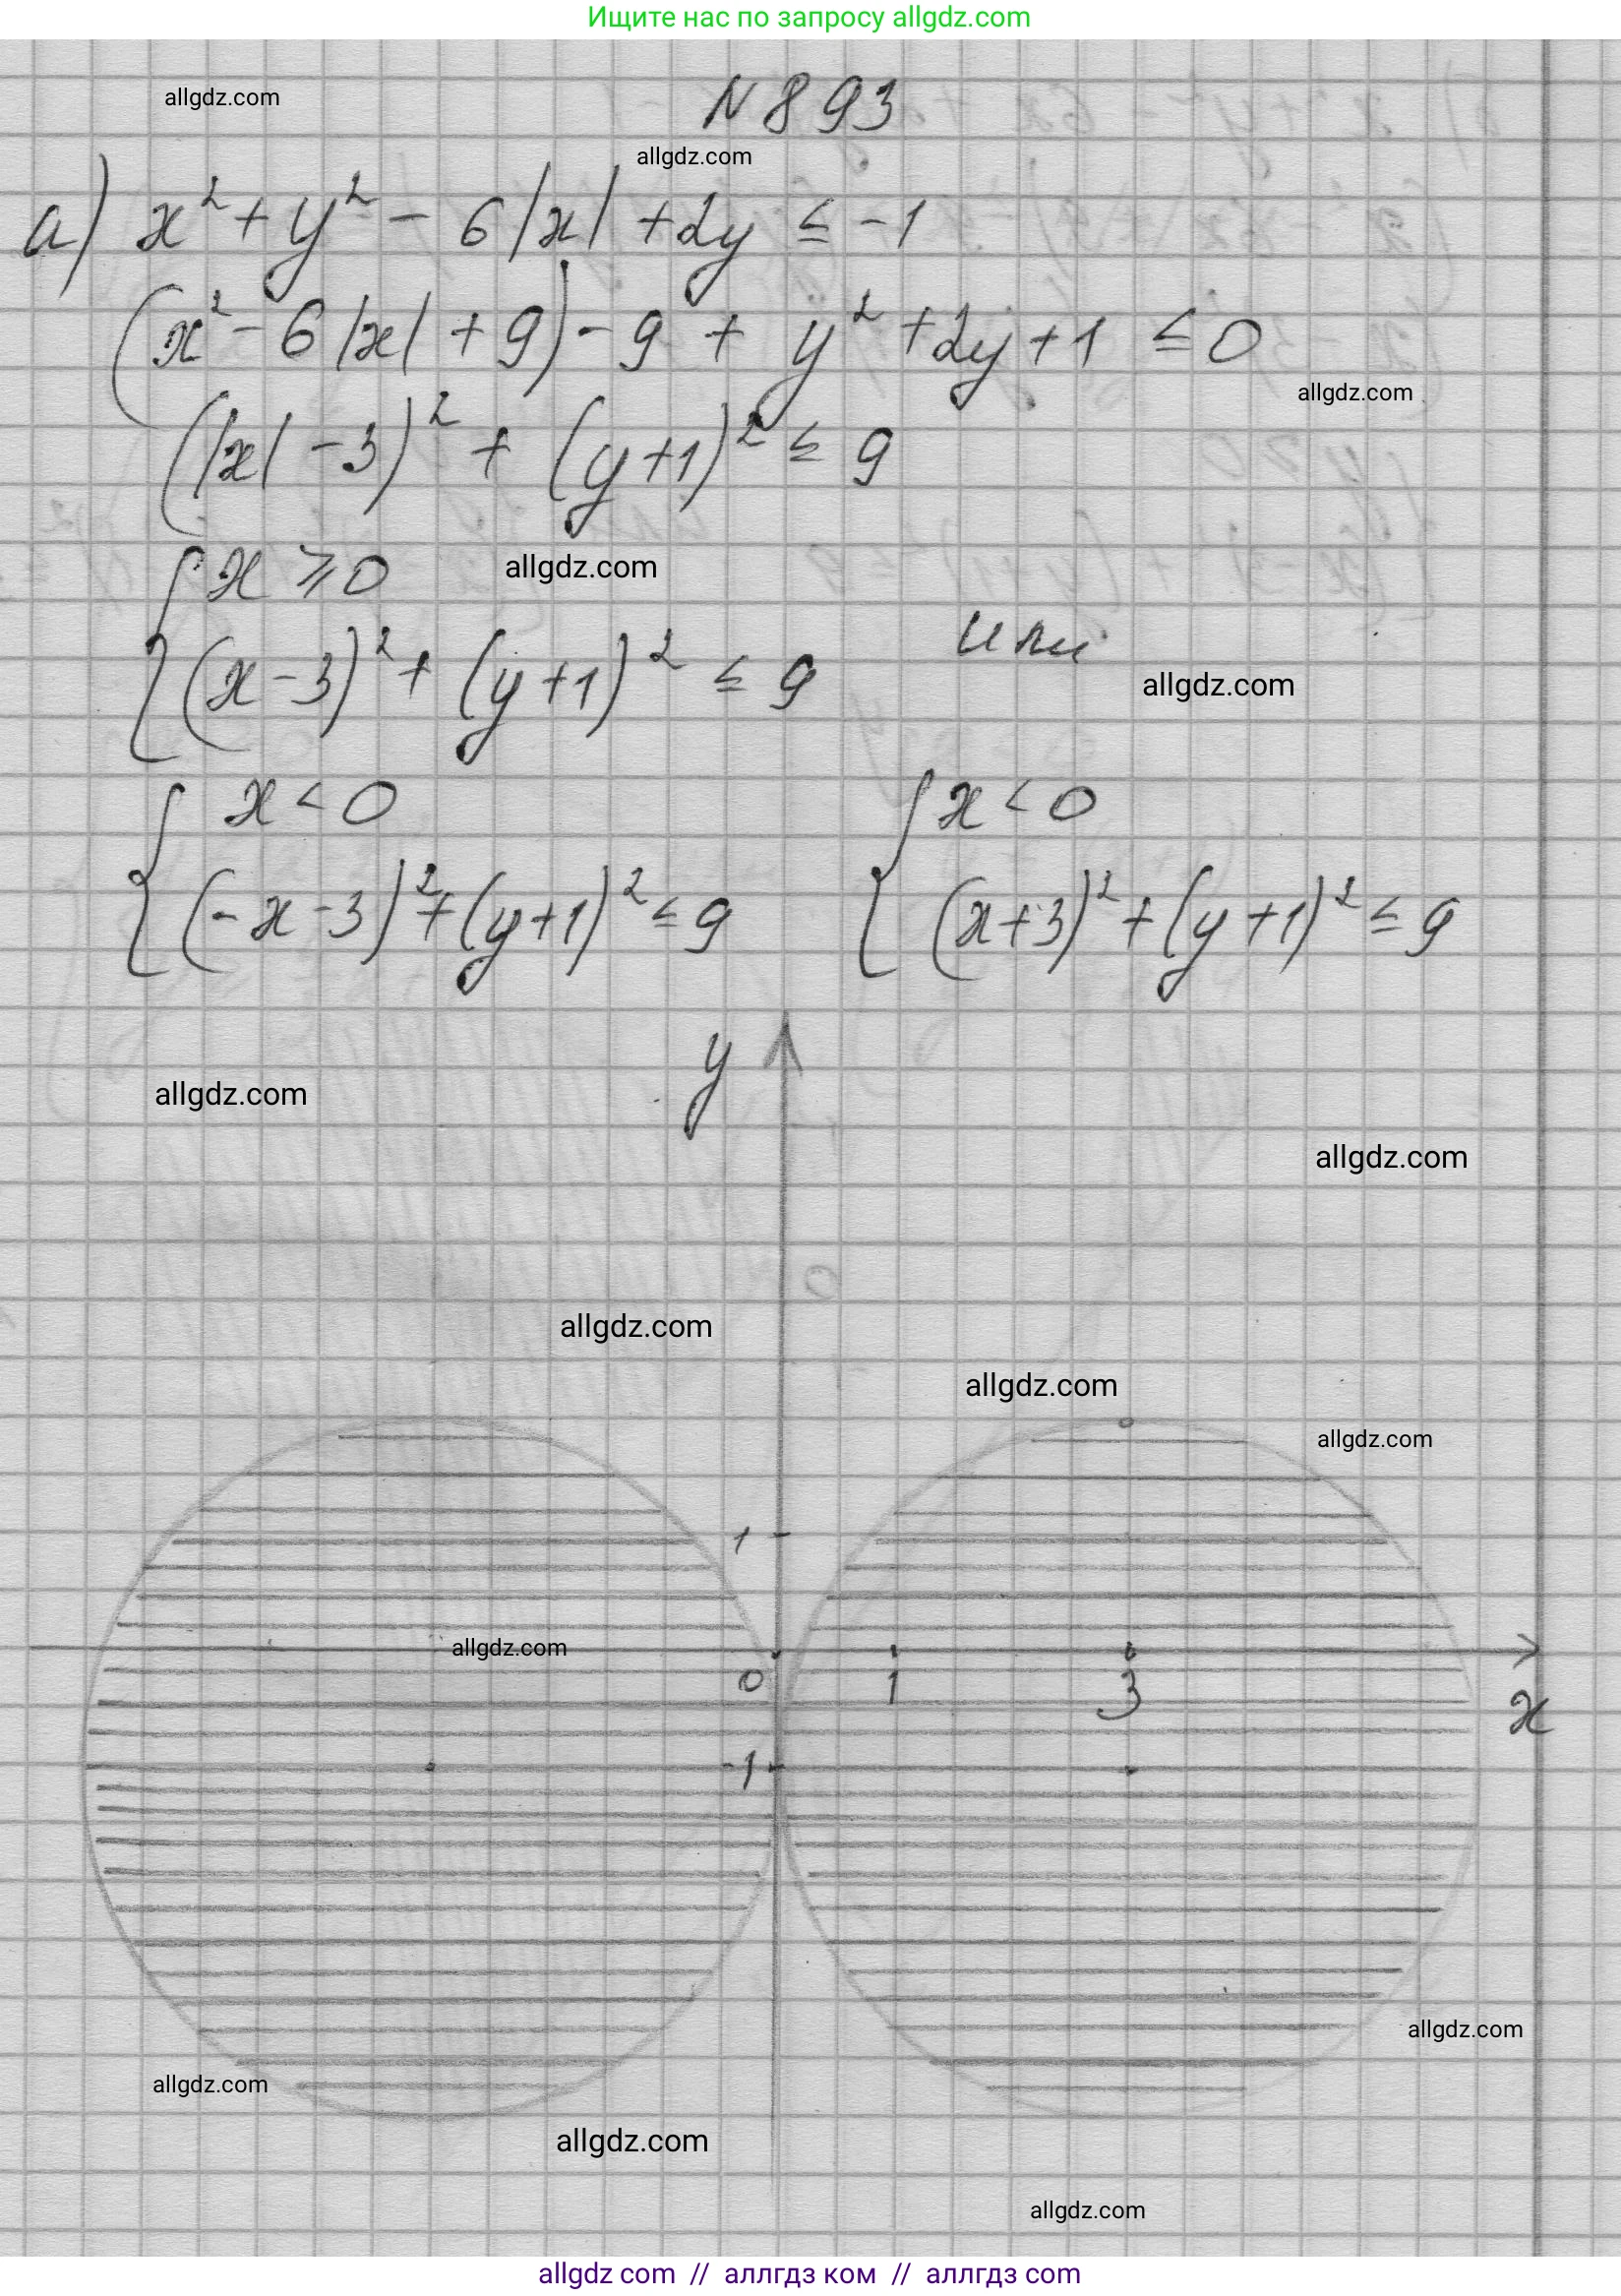 Ищите нас по запросу allgdz.com
allgdz.com
N 893
allgdz.com
а) x² + y² - 6|x| + 2y ≤ -1
(x² - 6|x| + 9) - 9 + y² + 2y + 1 ≤ 0
allgdz.com
(|x| - 3)² + (y + 1)² ≤ 9
{ x ⩾ 0
allgdz.com
(x - 3)² + (y + 1)² ≤ 9 или
allgdz.com
{ x < 0 { x < 0
(-x - 3)² + (y + 1)² ≤ 9 (x + 3)² + (y + 1)² ≤ 9
y
allgdz.com
allgdz.com
allgdz.com
allgdz.com
allgdz.com
1
allgdz.com
0 1 3 x
-1
allgdz.com
allgdz.com
allgdz.com
allgdz.com
allgdz com // аллгдз ком // аллгдз com